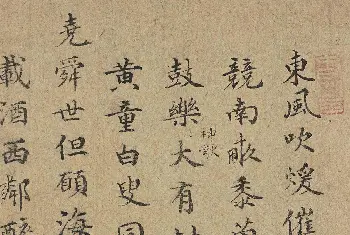 東風吹煖催
競南畝黍
鼓樂大有
神歌
黄童白叟同
堯舜世但願海
載酒西鄰醉